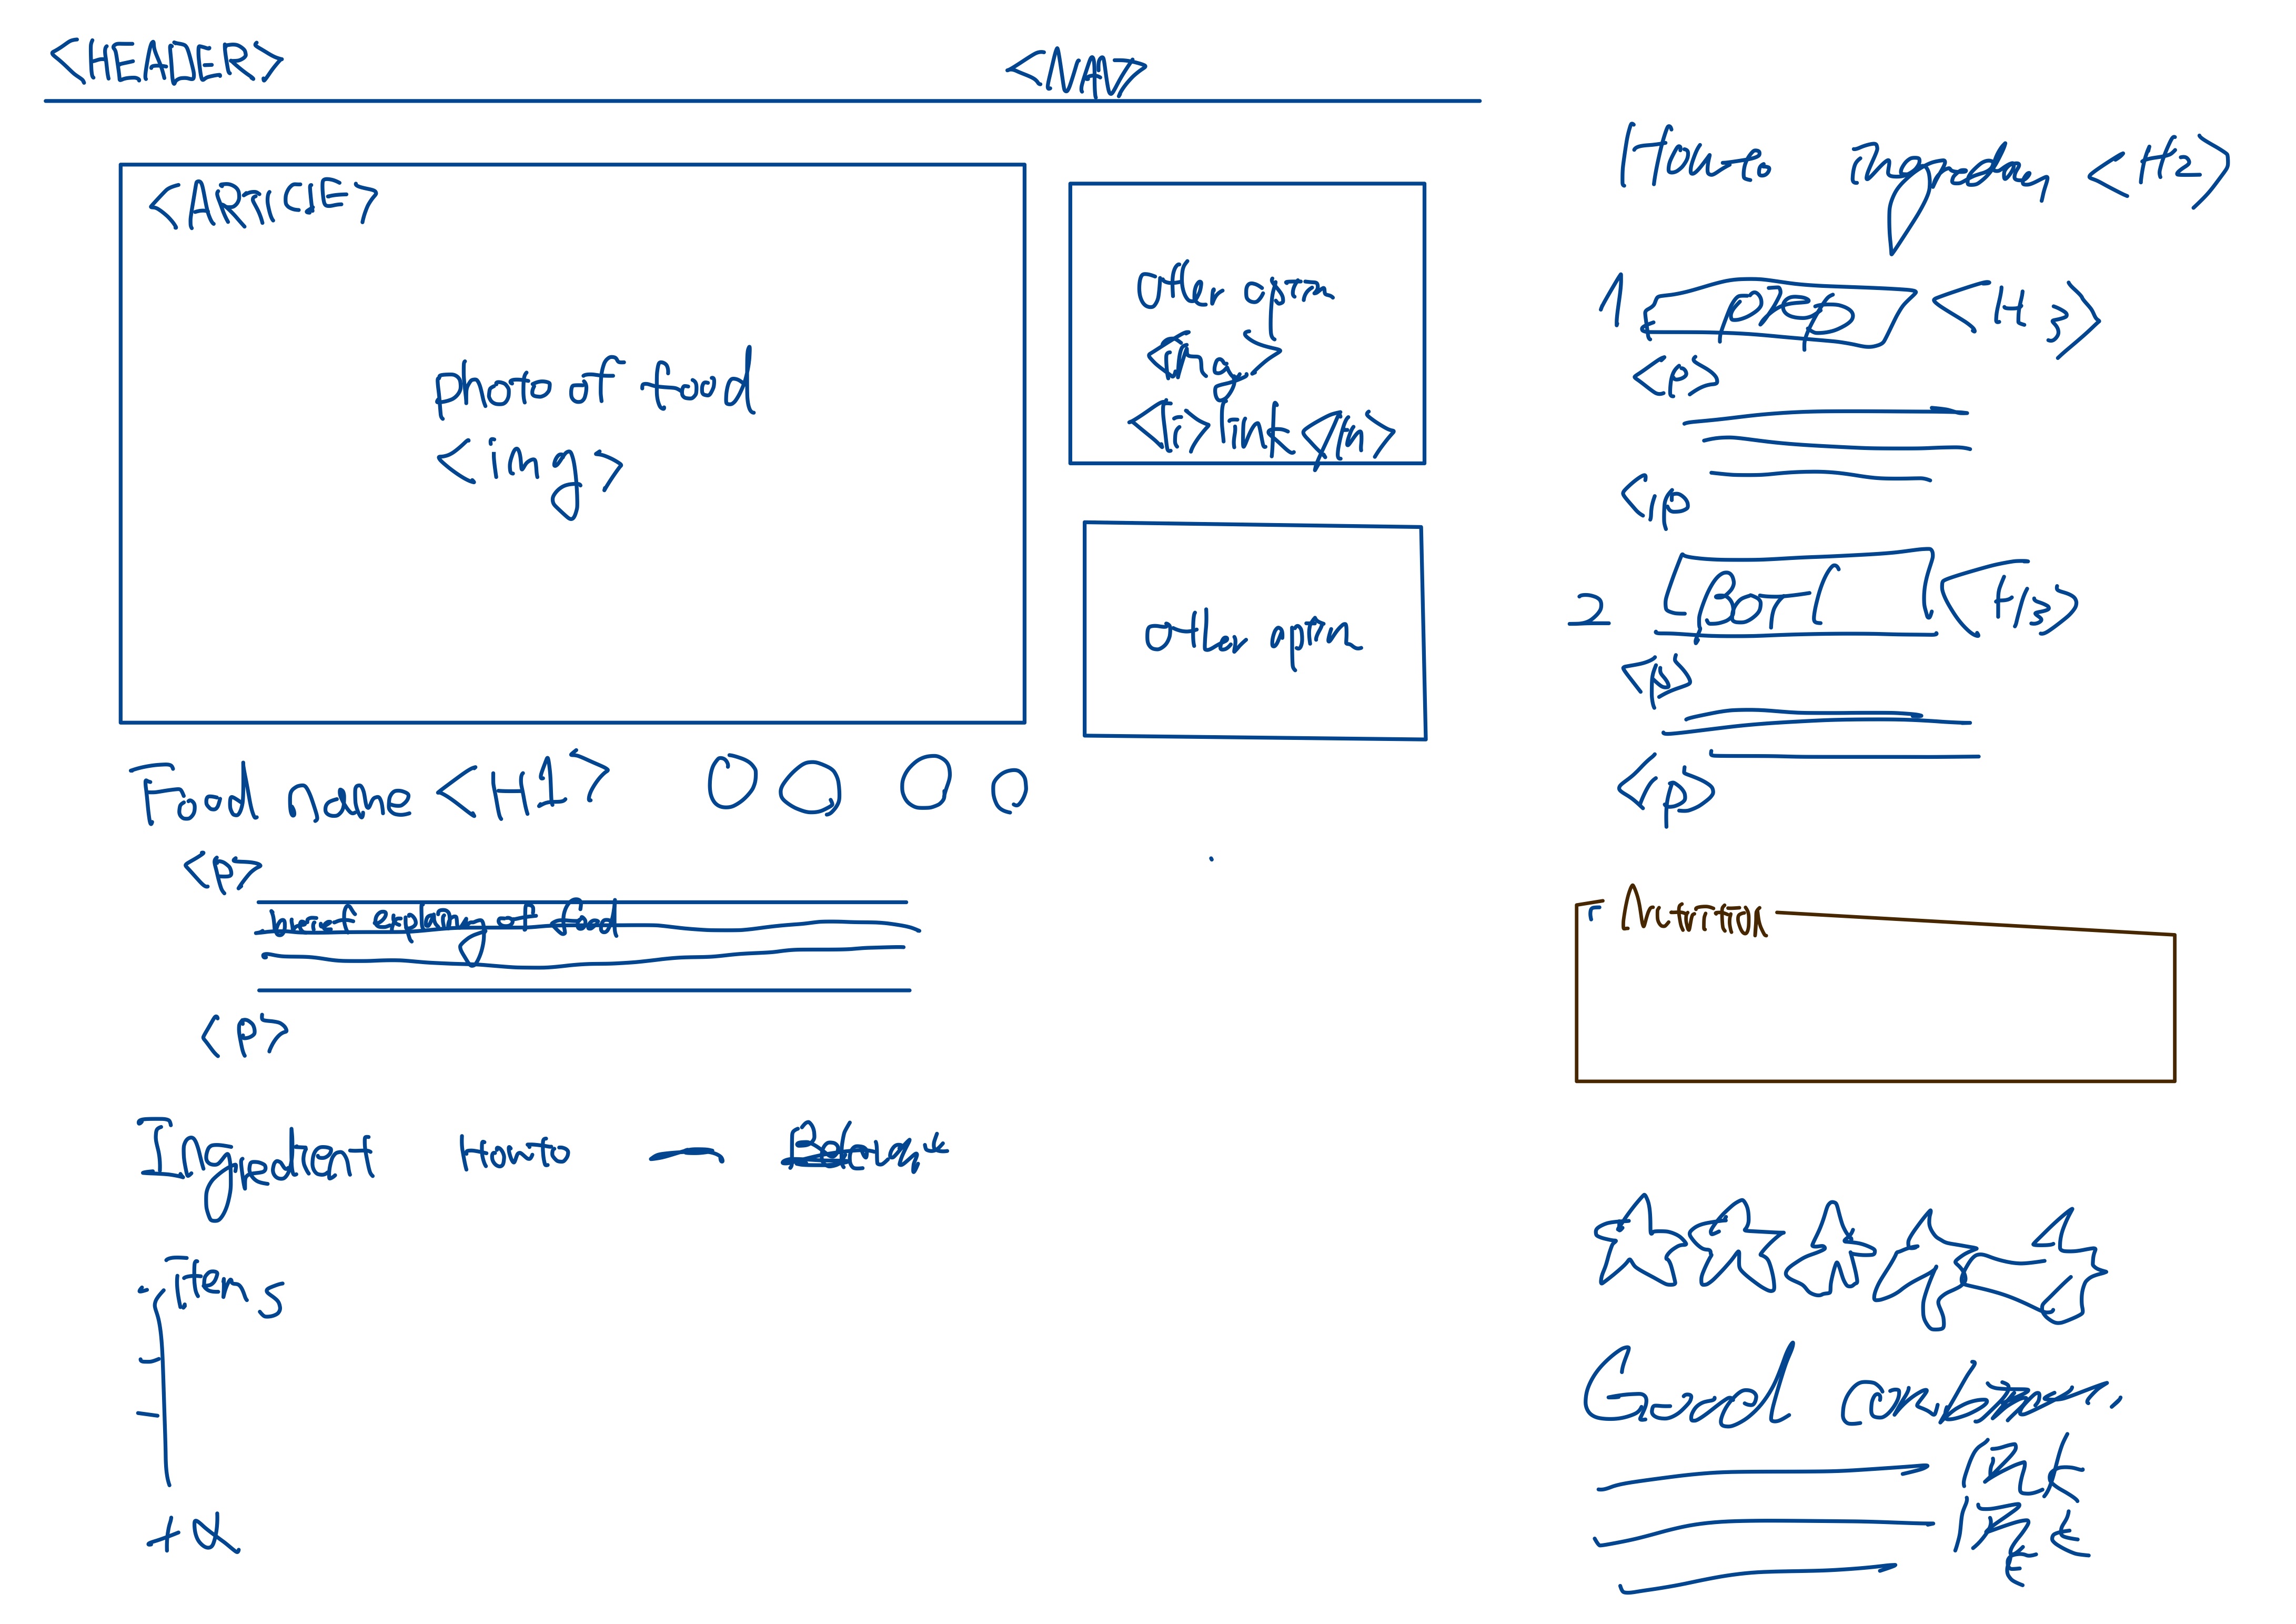 <HEADER> <NAV>
<ARTICLE>
photo of food
<img>
other option
<img>
<li> link </li>
other option
Food name <H1>
<p>
brief explaing of food
<p>
Ingredient Howto —
items
+α
How to <H2>
1 prep <H3>
<p>
<p
2 Boil <H3>
<p>
<p>
Nutrition
Good
link
link